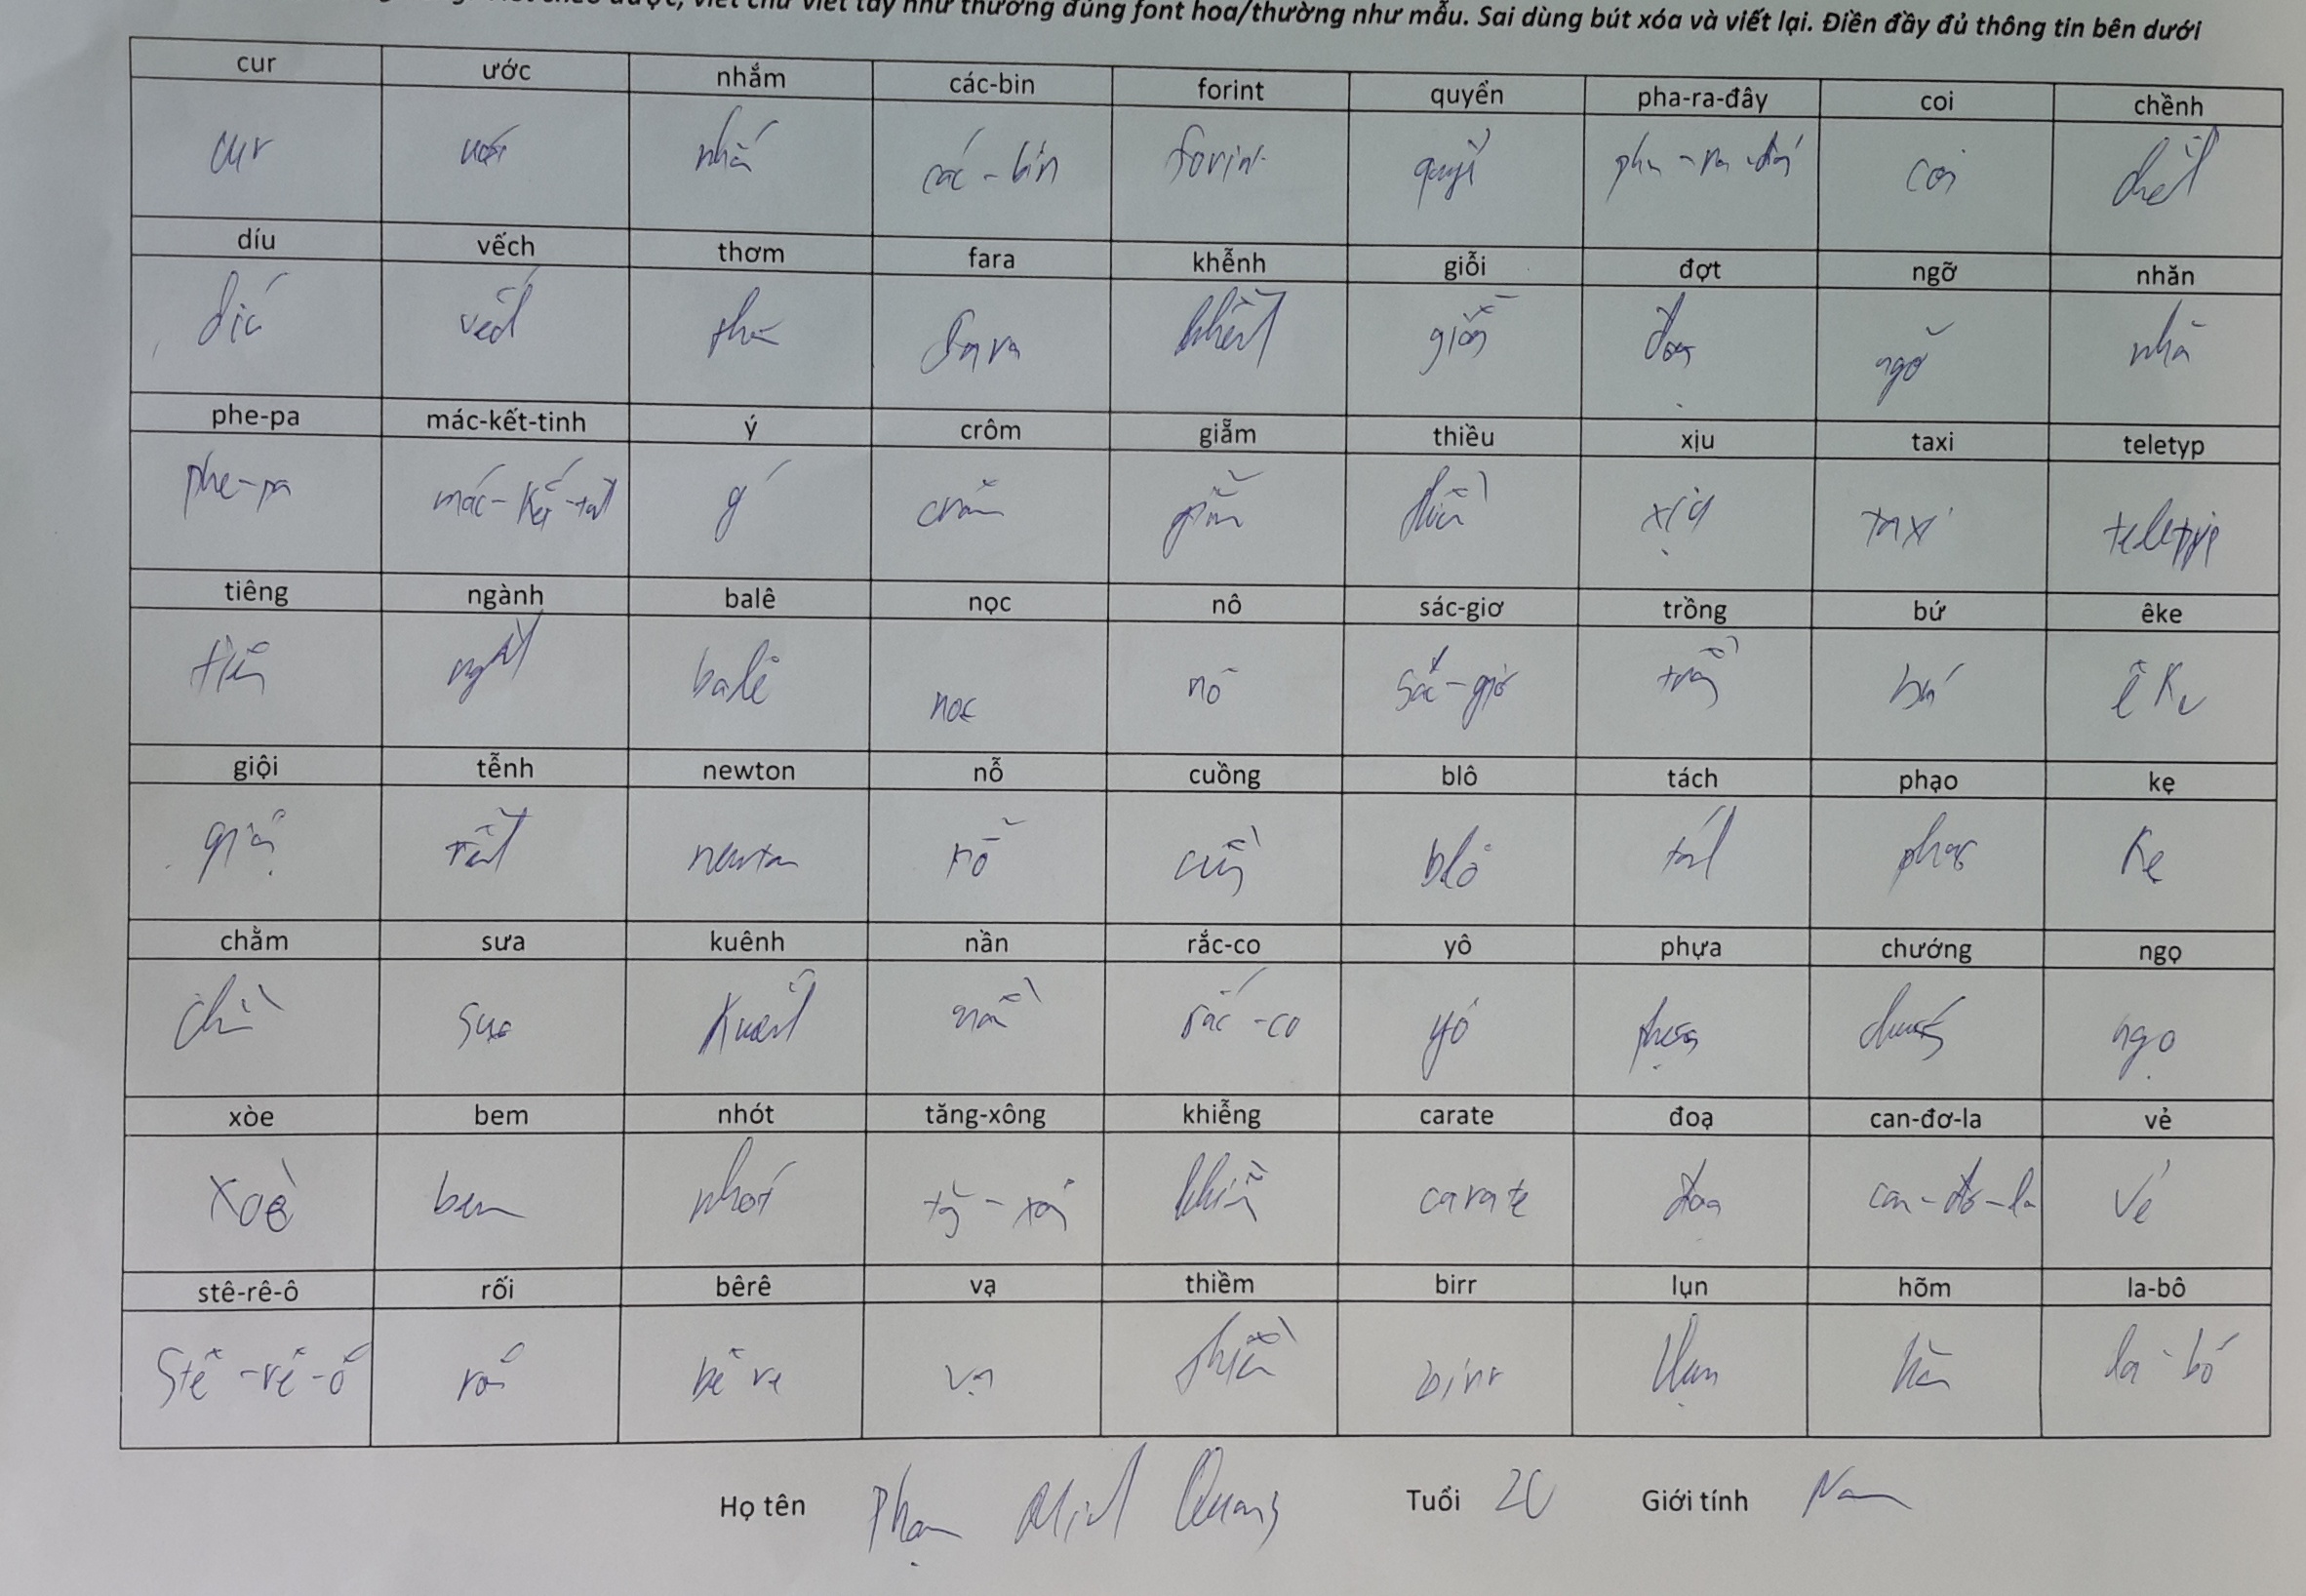 viết chữ viết tay như thường đúng font hoa/thường như mẫu. Sai dùng bút xóa và viết lại. Điền đầy đủ thông tin bên dưới
cur ước nhắm các-bin forint quyển pha-ra-đây coi chềnh
cur ước nhắm các-bin forint quyển pha-ra-đây coi chềnh
díu vếch thơm fara khễnh giỗi đợt ngỡ nhăn
díu vếch thơm fara khễnh giỗi đợt ngỡ nhăn
phe-pa mác-kết-tinh ý crôm giẵm thiều xịu taxi teletyp
phe-pa mác-kết-tinh ý crôm giẵm thiều xịu taxi teletyp
tiêng ngành balê nọc nô sác-giơ trồng bứ êke
tiêng ngành balê nọc nô sác-giơ trồng bứ êke
giội tễnh newton nỗ cuồng blô tách phạo kẹ
giội tễnh newton nỗ cuồng blô tách phạo kẹ
chằm sưa kuênh nần rắc-co yô phựa chướng ngọ
chằm sưa kuênh nần rắc-co yô phựa chướng ngọ
xòe bem nhót tăng-xông khiễng carate đoạ can-đơ-la vẻ
xoè bem nhót tăng-xông khiễng carate đoạ can-đơ-la vẻ
stê-rê-ô rối bêrê vạ thiềm birr lụn hõm la-bô
stê-rê-ô rối bêrê vạ thiềm birr lụn hõm la-bô
Họ tên Phạm Minh Quang Tuổi 20 Giới tính Nam